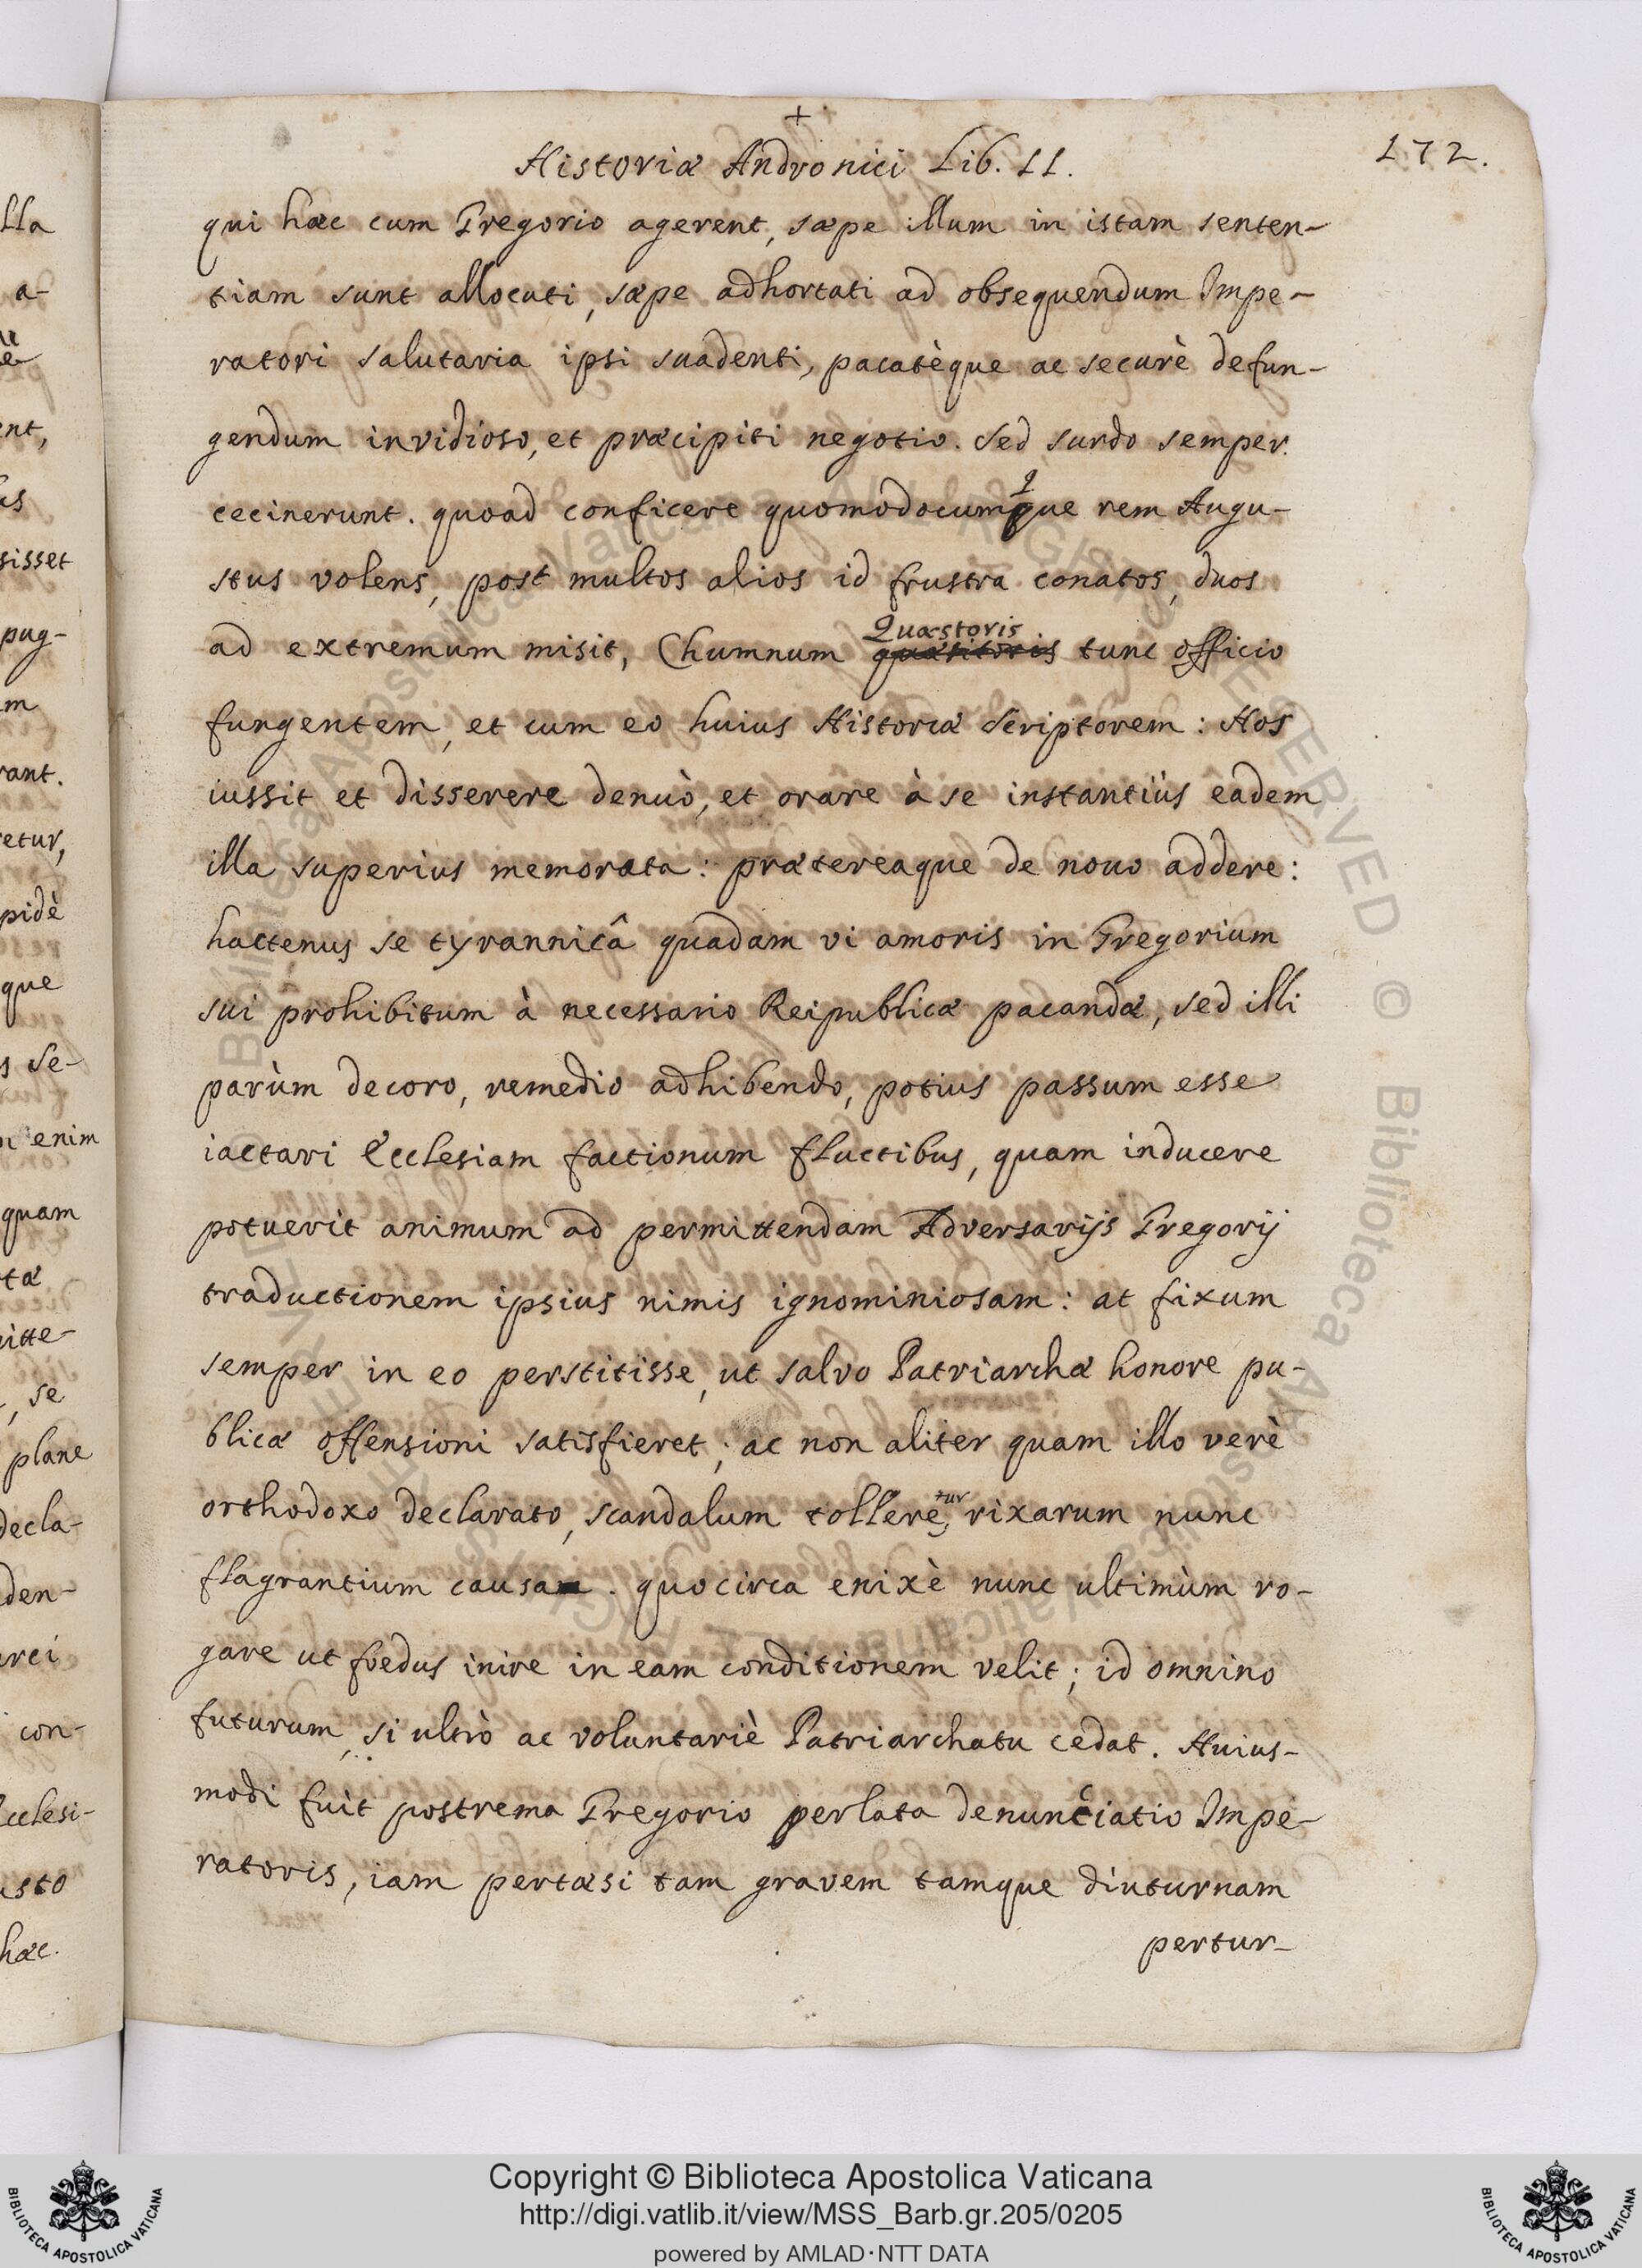 +
Historiæ Andronici Lib. II.
172.
qui hæc cum Gregorio agerent, sæpe illum in istam senten-
tiam sunt allocuti, sæpe adhortati ad obsequendum Impe-
ratori salutaria ipsi suadenti, pacatèque ac securè defun-
gendum invidioso, et præcipiti negotio. Sed surdo semper
cecinerunt. quoad conficere quomodocumque rem Augu-
stus volens, post multos alios id frustra conatos, duos
Quæstoris
ad extremum misit, Chumnum tunc officio
fungentem, et cum eo huius Historiæ Scriptorem: Hos
iussit et disserere denuò, et orare à se instantiùs eadem
illa superius memorata: prætereaque de nouo addere:
hactenus se tyrannicâ quadam vi amoris in Gregorium
sui prohibitum à necessario Reipublicæ pacandæ, sed illi
parùm decoro, remedio adhibendo, potius passum esse
iactari Ecclesiam factionum fluctibus, quam inducere
potuerit animum ad permittendam Adversarijs Gregorij
traductionem ipsius nimis ignominiosam: at fixum
semper in eo perstitisse, ut salvo Patriarchæ honore pu-
blicæ offensioni satisfieret; ac non aliter quam illo verè
orthodoxo declarato, scandalum tolleretur, rixarum nunc
flagrantium causa. quocirca enixè nunc ultimùm ro-
gare ut foedus inire in eam conditionem velit; id omnino
futurum, si ultrò ac voluntariè Patriarchatu cedat. Huius-
modi fuit postrema Gregorio perlata denunciatio Impe-
ratoris, iam pertæsi tam gravem tamque diuturnam
pertur-
lla
a-
ent,
sisset
pug-
m
rant.
etur,
pidè
que
s Se-
enim
quam
tæ
itte-
, se
plane
decla-
den-
con-
cclesi-
usto
hæc.
© Biblioteca Apostolica Vaticana ALL RIGHTS RESERVED © Biblioteca Apostolica Vaticana ALL RIGHTS RESERVED
Copyright © Biblioteca Apostolica Vaticana
http://digi.vatlib.it/view/MSS_Barb.gr.205/0205
powered by AMLAD·NTT DATA
BIBLIOTECA APOSTOLICA VATICANA
BIBLIOTECA APOSTOLICA VATICANA